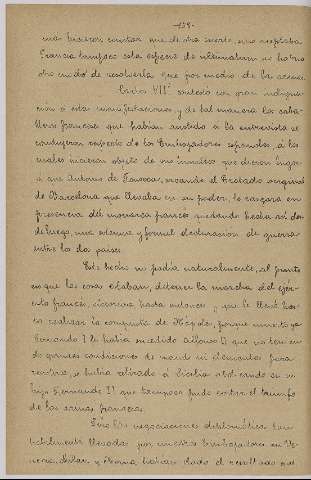 -138-
de otra suerte, si no aceptaba
Francia tampoco esta especie de ultimatum no habría
otro modo de resolverla que por medio de las armas.
Carlos VIII contestó con gran indigna-
ción a estas manifestaciones y de tal manera los caba-
lleros franceses que habían asistido a la entrevista se
condujeron respecto de los Embajadores españoles, a los
cuales hicieron objeto de mil insultos que dieron lugar
a que Antonio de Fonseca, sacando el Tratado original
de Barcelona que llevaba en su poder, lo rasgara en
presencia del monarca francés quedando hecha así des-
de luego, una solemne y formal declaración de guerra
entre los dos países.
Este hecho no podía naturalmente, al punto
en que las cosas estaban, detener la marcha del ejér-
cito francés, victoriosa hasta entonces y que le llevó has-
ta realizar la conquista de Nápoles, porque muerto ya
Fernando I le había sucedido Alfonso II que no tenien-
do grandes condiciones de mando ni elementos para
resistir, se había retirado a Sicilia abdicando en su
hijo Fernando II que tampoco pudo evitar el triunfo
de las armas francesas.
Pero las negociaciones diplomáticas han
hábilmente llevadas por nuestros Embajadores en Ve-
necia, Milán y Roma habían dado el resultado que